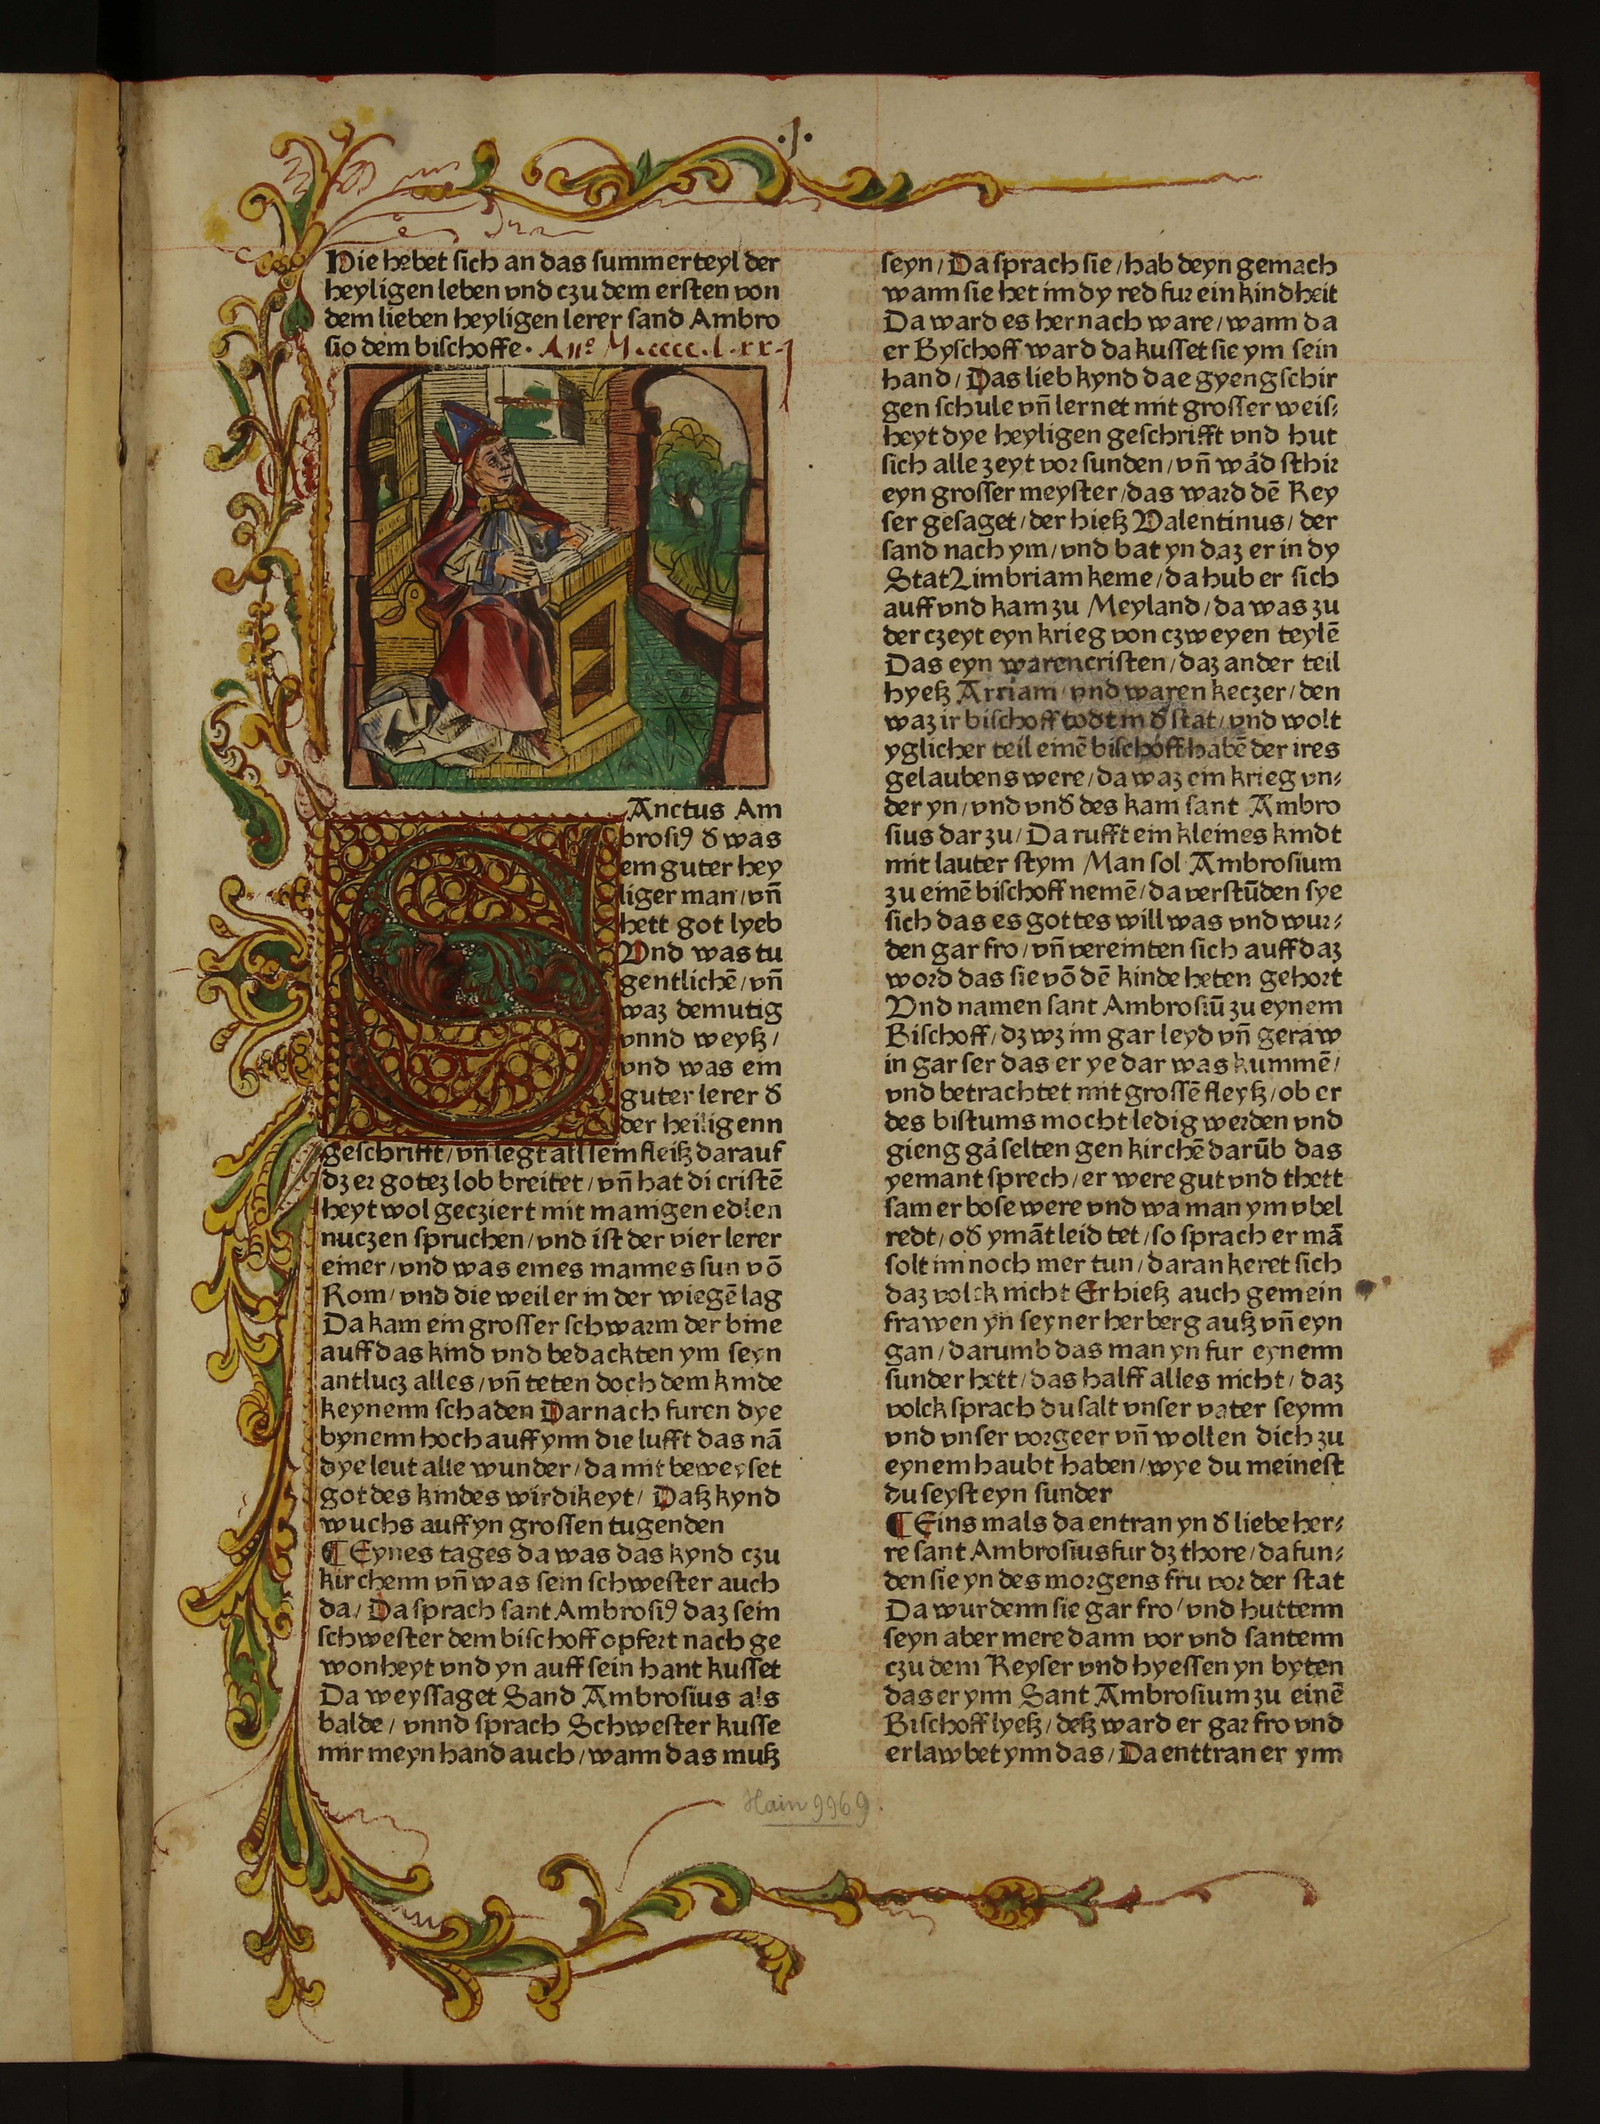 .1.
Hie hebet sich an das summerteyl der
heyligen leben vnd czu dem ersten von
dem lieben heyligen lerer sand Ambro
sio dem bischoffe. Anº M.cccc.l.xx.j
Anctus Am
brosiꝰ đ was
ein guter hey
liger man/vñ
hett got lyeb
Vnd was tu
gentlichē/vñ
waz demutig
vnnd weyß/
vnd was ein
guter lerer đ
der heiligenn
geschrifft/vñ legt all sein fleiß darauf
dz er gotez lob breitet/vñ hat di cristē
heyt wol gecziert mit manigen edlen
nuczen spruchen/vnd ist der vier lerer
einer/vnd was eines mannes sun vō
Rom/vnd die weil er in der wiegē lag
Da kam ein grosser schwarm der bine
auff das kind vnd bedackten ym seyn
antlucz alles/vñ teten doch dem kinde
keynenn schaden Darnach furen dye
bynenn hoch auff ynn die lufft das nā
dye leut alle wunder/da mit beweyset
got des kindes wirdikeyt/ Daß kynd
wuchs auff yn grossen tugenden
¶ Eynes tages da was das kynd czu
kirchenn vñ was sein schwester auch
da/Da sprach sant Ambrosiꝰ daz sein
schwester dem bischoff opfert nach ge
wonheyt vnd yn auff sein hant kusset
Da weyssaget Sand Ambrosius als
balde/ vnnd sprach Schwester kusse
mir meyn hand auch/wann das muß
seyn/Da sprach sie/hab deyn gemach
wann sie het im dy red fur ein kindheit
Da ward es hernach ware/wann da
er Byschoff ward da kusset sie ym sein
hand/Das lieb kynd dae gyeng schir
gen schule vñ lernet mit grosser weis⸗
heyt dye heyligen geschrifft vnd hut
sich alle zeyt vor sunden/vñ wa͛d sthir
eyn grosser meyster/das ward dē Key
ser gesaget/der hieß Valentinus/der
sand nach ym/vnd bat yn daz er in dy
Stat Limbriam keme/da hub er sich
auff vnd kam zu Meyland/da was zu
der czeyt eyn krieg von czweyen teylē
Das eyn waren cristen/daz ander teil
hyeß Arriam vnd waren keczer/den
waz ir bischoff todt in đ stat/vnd wolt
yglicher teil einē bischoff habē der ires
gelaubens were/da waz ein krieg vn⸗
der yn/vnd vnđ des kam sant Ambro
sius dar zu/Da rufft ein kleines kindt
mit lauter stym Man sol Ambrosium
zu einē bischoff nemē/da verstūden sye
sich das es gottes will was vnd wur⸗
den gar fro/vñ vereinten sich auff daz
word das sie vō dē kinde heten gehort
Vnd namen sant Ambrosiū zu eynem
Bischoff/dz wz im gar leyd vñ geraw
in gar ser das er ye dar was kummē/
vnd betrachtet mit grossē fleyß/ob er
des bistums mocht ledig werden vnd
gieng ga͛ selten gen kirchē darūb das
yemant sprech/er were gut vnd thett
sam er bose were vnd wa man ym vbel
redt/ođ ymāt leid tet/so sprach er mā
solt im noch mer tun/daran keret sich
daz volck nicht Er hieß auch gemein
frawen yn seyner herberg auß vñ eyn
gan/darumb das man yn fur eynenn
sunder hett/das halff alles nicht/daz
volck sprach du salt vnser vater seynn
vnd vnser vorgeer vñ wollen dich zu
eynem haubt haben/wye du meinest
du seyst eyn sunder
¶ Eins mals da entran yn đ liebe her⸗
re sant Ambrosius fur dz thore/da fun⸗
den sie yn des morgens fru vor der stat
Da wurdenn sie gar fro/vnd huttenn
seyn aber mere dann vor vnd santenn
czu dem Keyser vnd hyessen yn byten
das er ynn Sant Ambrosium zu einē
Bischoff lyeß/deß ward er gar fro vnd
erlawbet ynn das/Da enttran er ynn
Hain 9969.